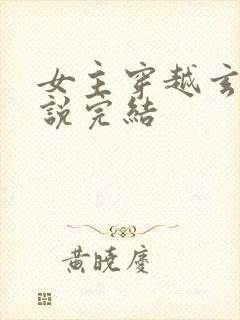 女主穿越玄
說完結
黃曉慶